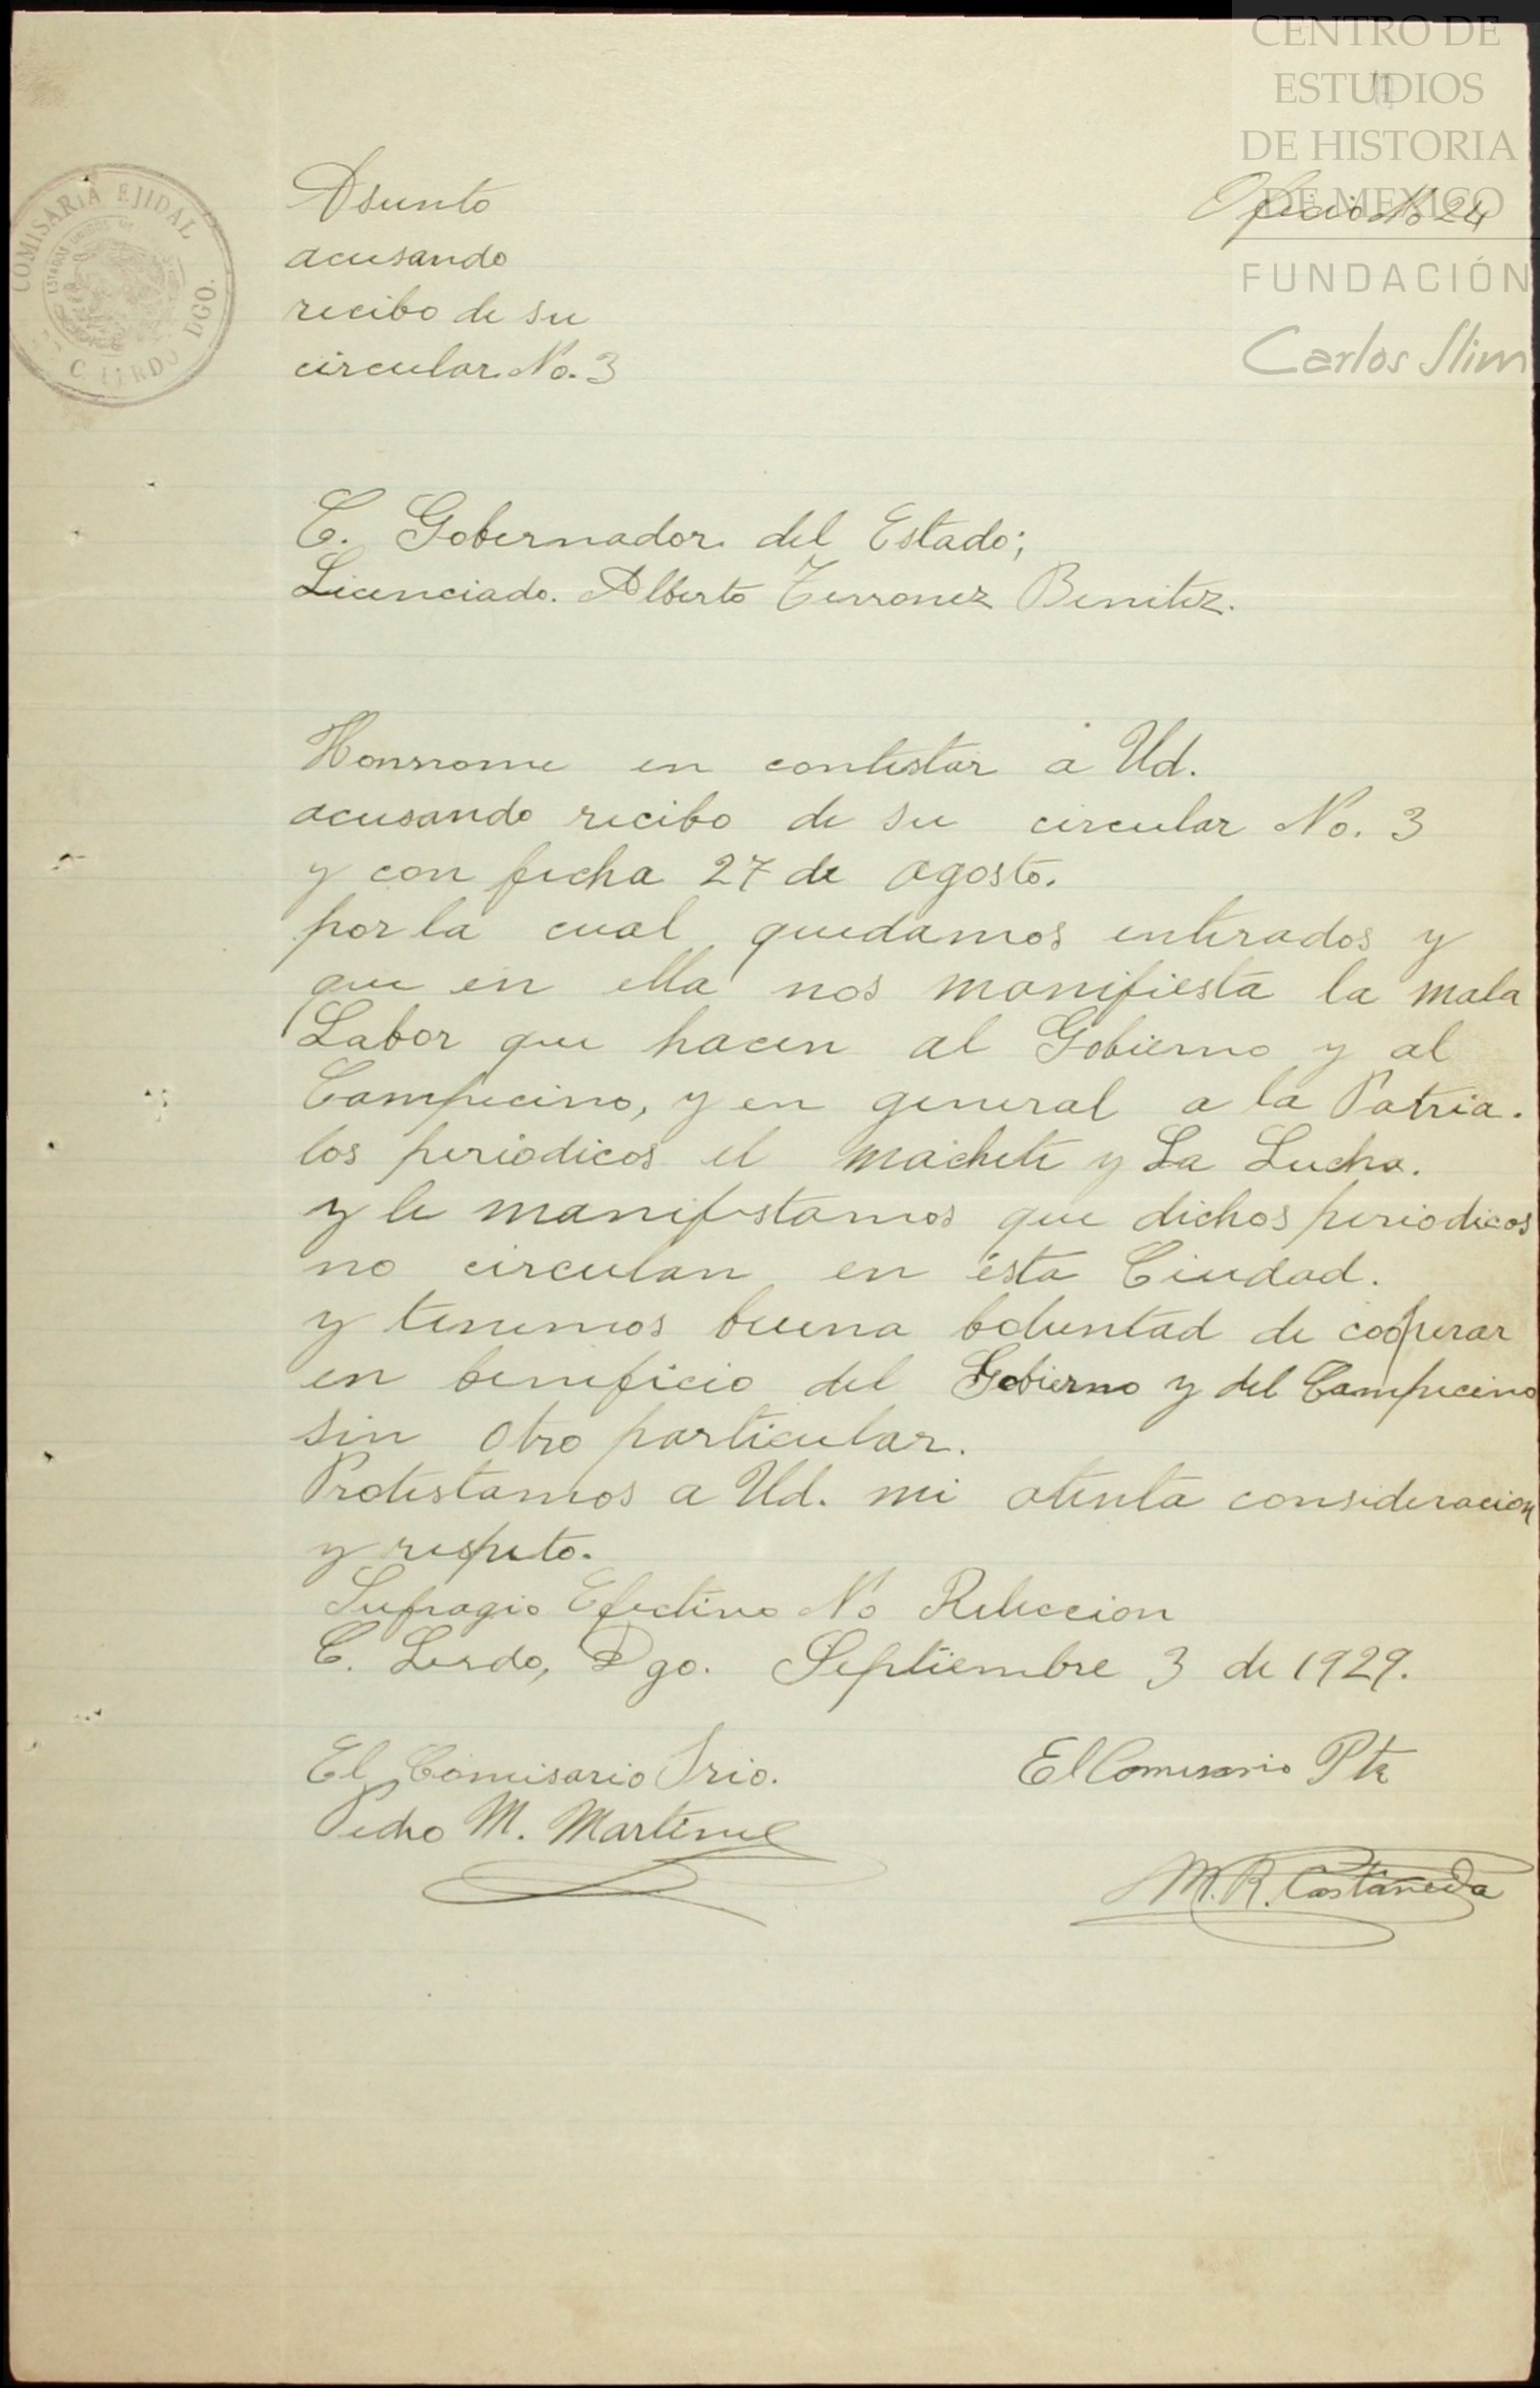 CENTRO DE
ESTUDIOS
DE HISTORIA
DE MEXICO
FUNDACIÓN
Carlos Slim
COMISARIA EJIDAL
ESTADOS UNIDOS
C. LERDO DGO.
Oficio No 24
Asunto
acusando
recibo de su
circular No. 3
C. Gobernador del Estado;
Licenciado. Alberto Terronez Benitez.
Honrrome en contestar a Ud.
acusando recibo de su circular No. 3
y con fecha 27 de agosto.
por la cual quedamos enterados y
que en ella nos manifiesta la mala
Labor que hacen al Gobierno y al
Campecino, y en general a la Patria.
los periodicos el machete y La Lucha.
y le manifestamos que dichos periodicos
no circulan en ésta Ciudad.
y tenemos buena boluntad de cooperar
en beneficio del Gobierno y del Campecino
sin otro particular.
Protestamos a Ud. mi atenta consideracion
y respeto.
Sufragio Efectivo No Releccion
C. Lerdo, Dgo. Septiembre 3 de 1929.
El Comisario Srio.
Pedro M. Martinez
El Comisario Pte
M. R. Castañeda